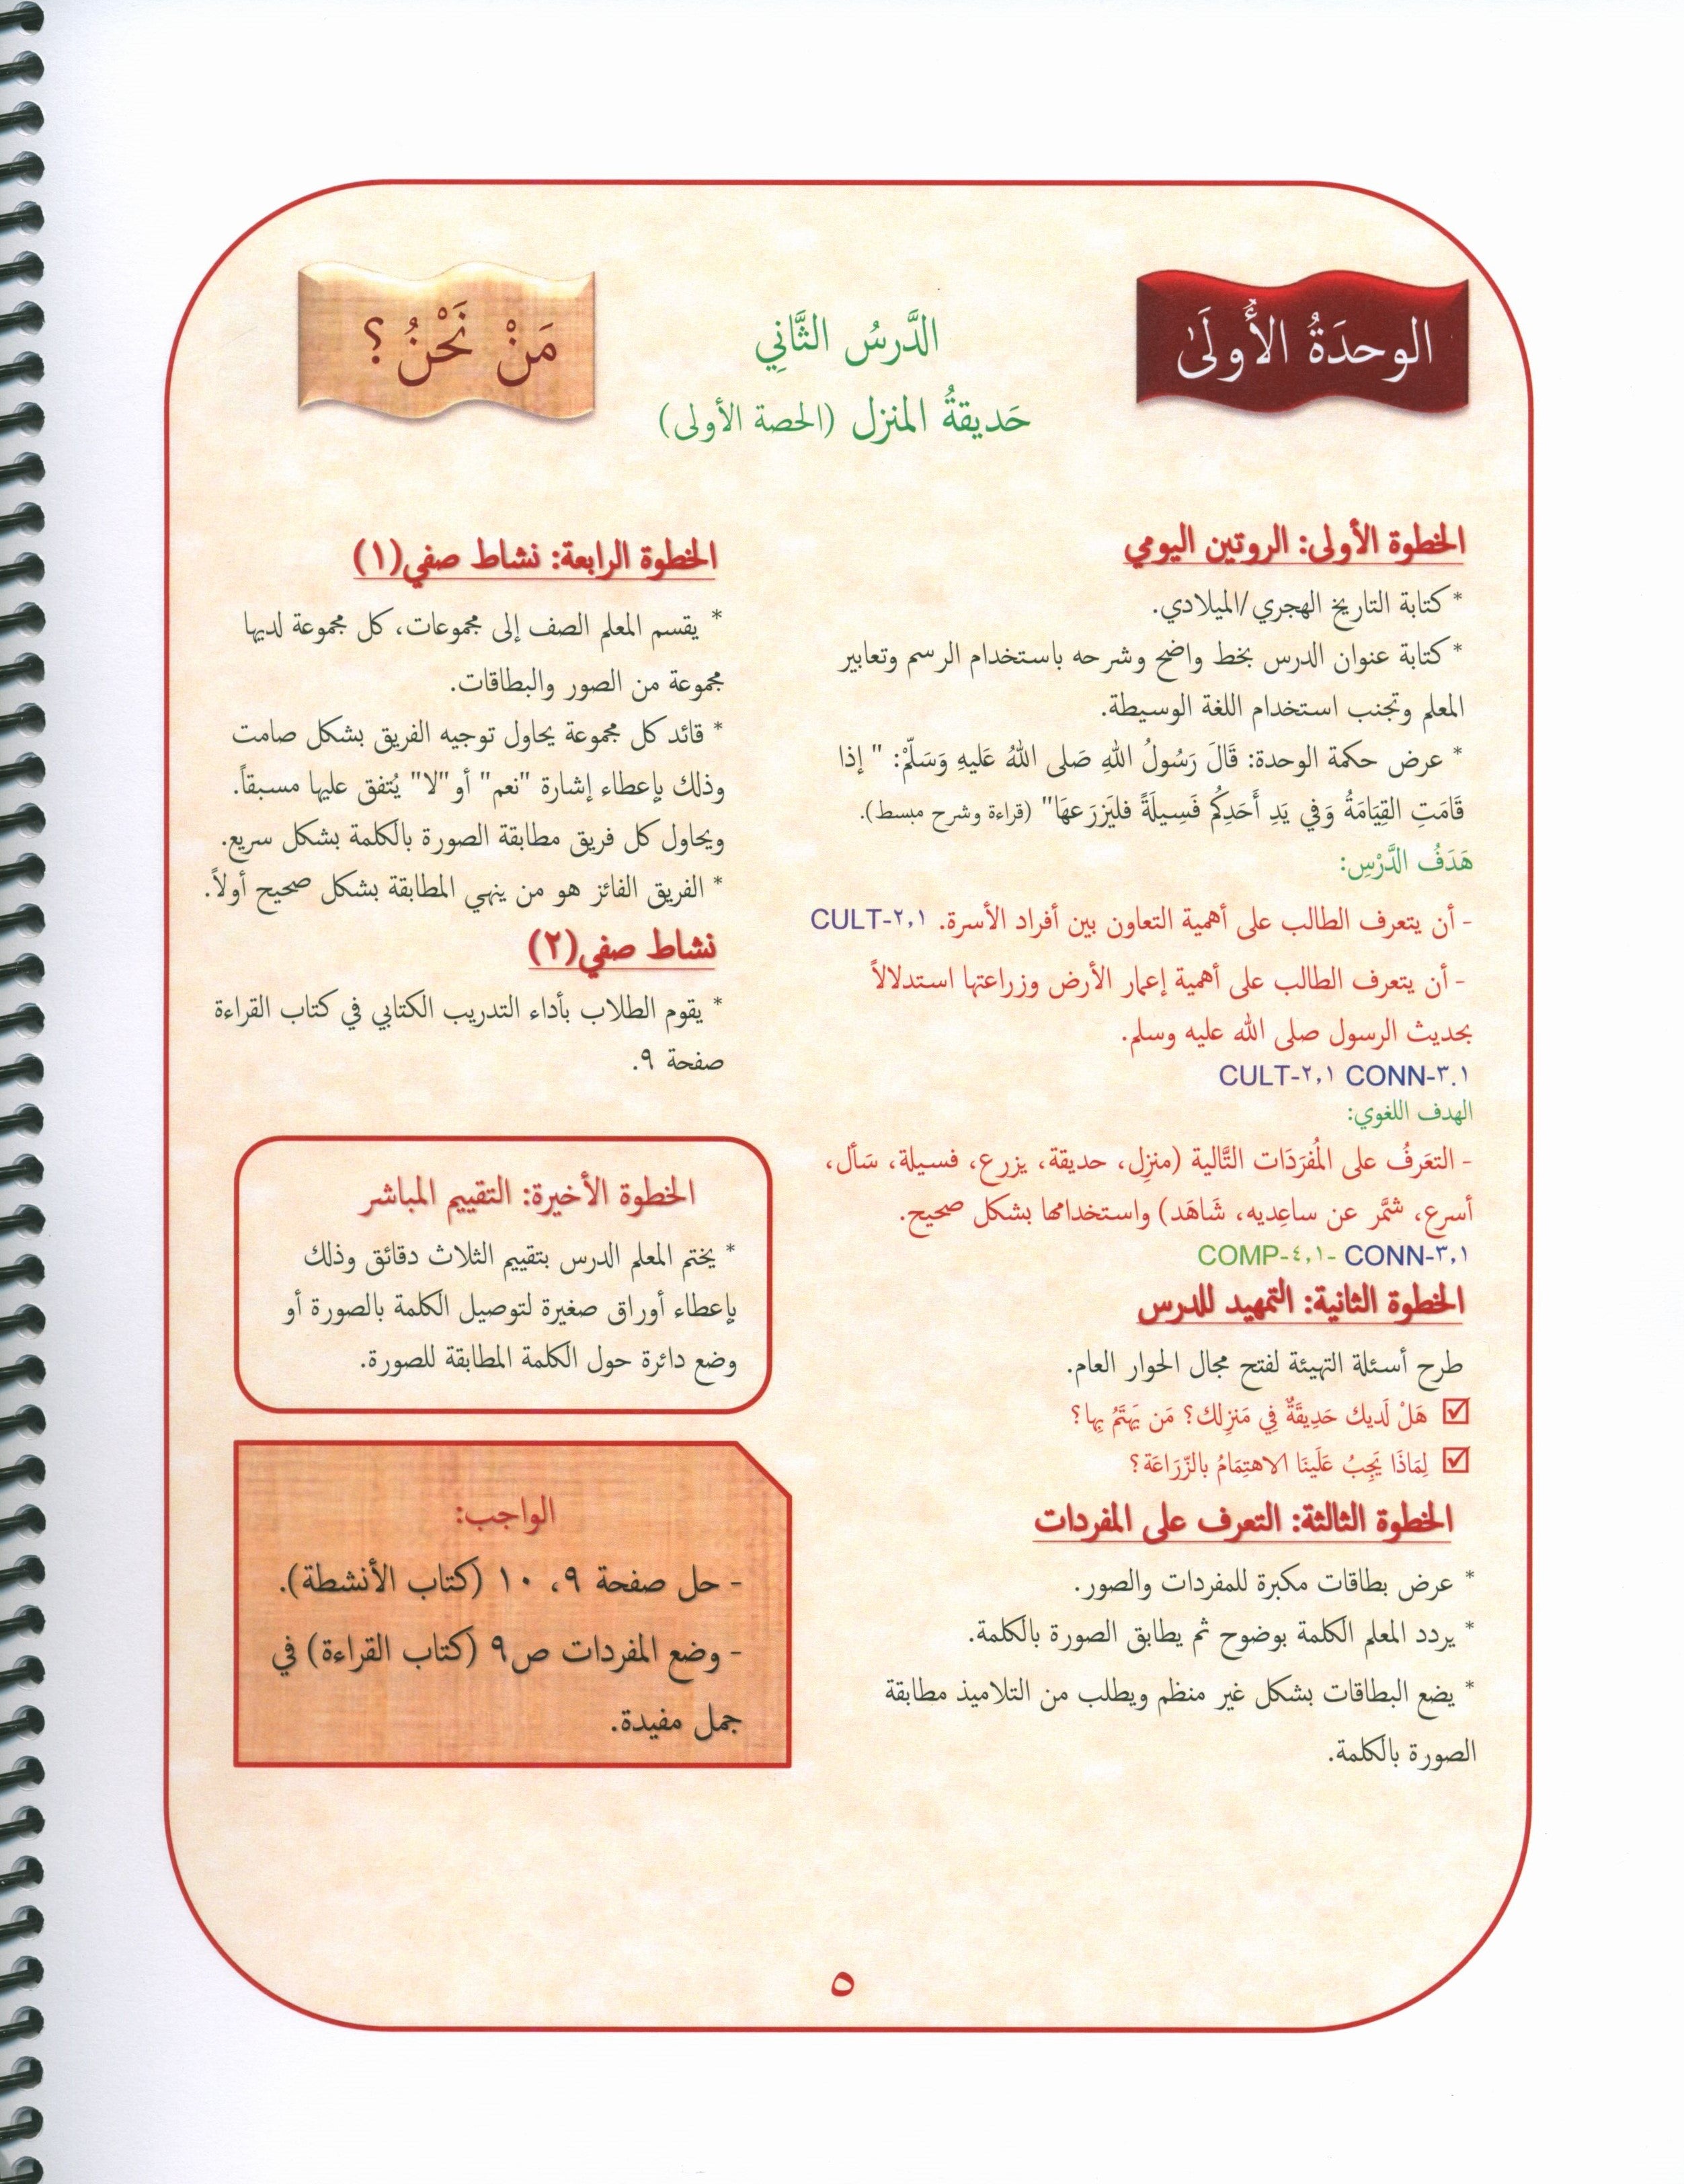 الوحدَةُ الأُولَىٰ
الدَّرسُ الثَّانِي
حَديقةُ المنزل (الحصة الأولى)
مَنْ نَحْنُ؟
الخطوة الأولى: الروتين اليومي
* كتابة التاريخ الهجري/الميلادي.
* كتابة عنوان الدرس بخط واضح وشرحه باستخدام الرسم وتعابير
المعلم وتجنب استخدام اللغة الوسيطة.
* عرض حكمة الوحدة: قَالَ رَسُولُ اللهِ صَلى اللهُ عَليهِ وَسَلّمْ: " إذا
قَامَتِ القِيَامَةُ وَفي يَدِ أَحَدِكُم فَسِيلَةً فليَزرَعهَا" (قراءة وشرح مبسط).
هَدَفُ الدَّرْسِ:
- أن يتعرف الطالب على أهمية التعاون بين أفراد الأسرة. CULT-٢,١
- أن يتعرف الطالب على أهمية إعمار الأرض وزراعتها استدلالاً
بحديث الرسول صلى الله عليه وسلم.
CULT-٢,١ CONN-٣.١
الهدف اللغوي:
- التعَرفُ على المُفرَدَات التَّالية (منزِل، حديقة، يزرع، فسيلة، سَأل،
أسرع، شمَّر عن ساعِديه، شَاهَد) واستخدامها بشكل صحيح.
COMP-٤,١- CONN-٣,١
الخطوة الثانية: التمهيد للدرس
طرح أسئلة التهيئة لفتح مجال الحوار العام.
☑ هَلْ لَديك حَدِيقَةٌ فِي مَنزِلك؟ مَن يَهتَمُّ بِها؟
☑ لِمَاذَا يَجِبُ عَلَينَا الاهتِمَامُ بالزّرَاعَة؟
الخطوة الثالثة: التعرف على المفردات
* عرض بطاقات مكبرة للمفردات والصور.
* يردد المعلم الكلمة بوضوح ثم يطابق الصورة بالكلمة.
* يضع البطاقات بشكل غير منظم ويطلب من التلاميذ مطابقة
الصورة بالكلمة.
الخطوة الرابعة: نشاط صفي(١)
* يقسم المعلم الصف إلى مجموعات، كل مجموعة لديها
مجموعة من الصور والبطاقات.
* قائد كل مجموعة يحاول توجيه الفريق بشكل صامت
وذلك بإعطاء إشارة "نعم" أو"لا" يُتفق عليها مسبقاً.
ويحاول كل فريق مطابقة الصورة بالكلمة بشكل سريع.
* الفريق الفائز هو من ينهي المطابقة بشكل صحيح أولاً.
نشاط صفي(٢)
* يقوم الطلاب بأداء التدريب الكتابي في كتاب القراءة
صفحة ٩.
الخطوة الأخيرة: التقييم المباشر
* يختم المعلم الدرس بتقييم الثلاث دقائق وذلك
بإعطاء أوراق صغيرة لتوصيل الكلمة بالصورة أو
وضع دائرة حول الكلمة المطابقة للصورة.
الواجب:
- حل صفحة ٩، ١٠ (كتاب الأنشطة).
- وضع المفردات ص٩ (كتاب القراءة) في
جمل مفيدة.
٥